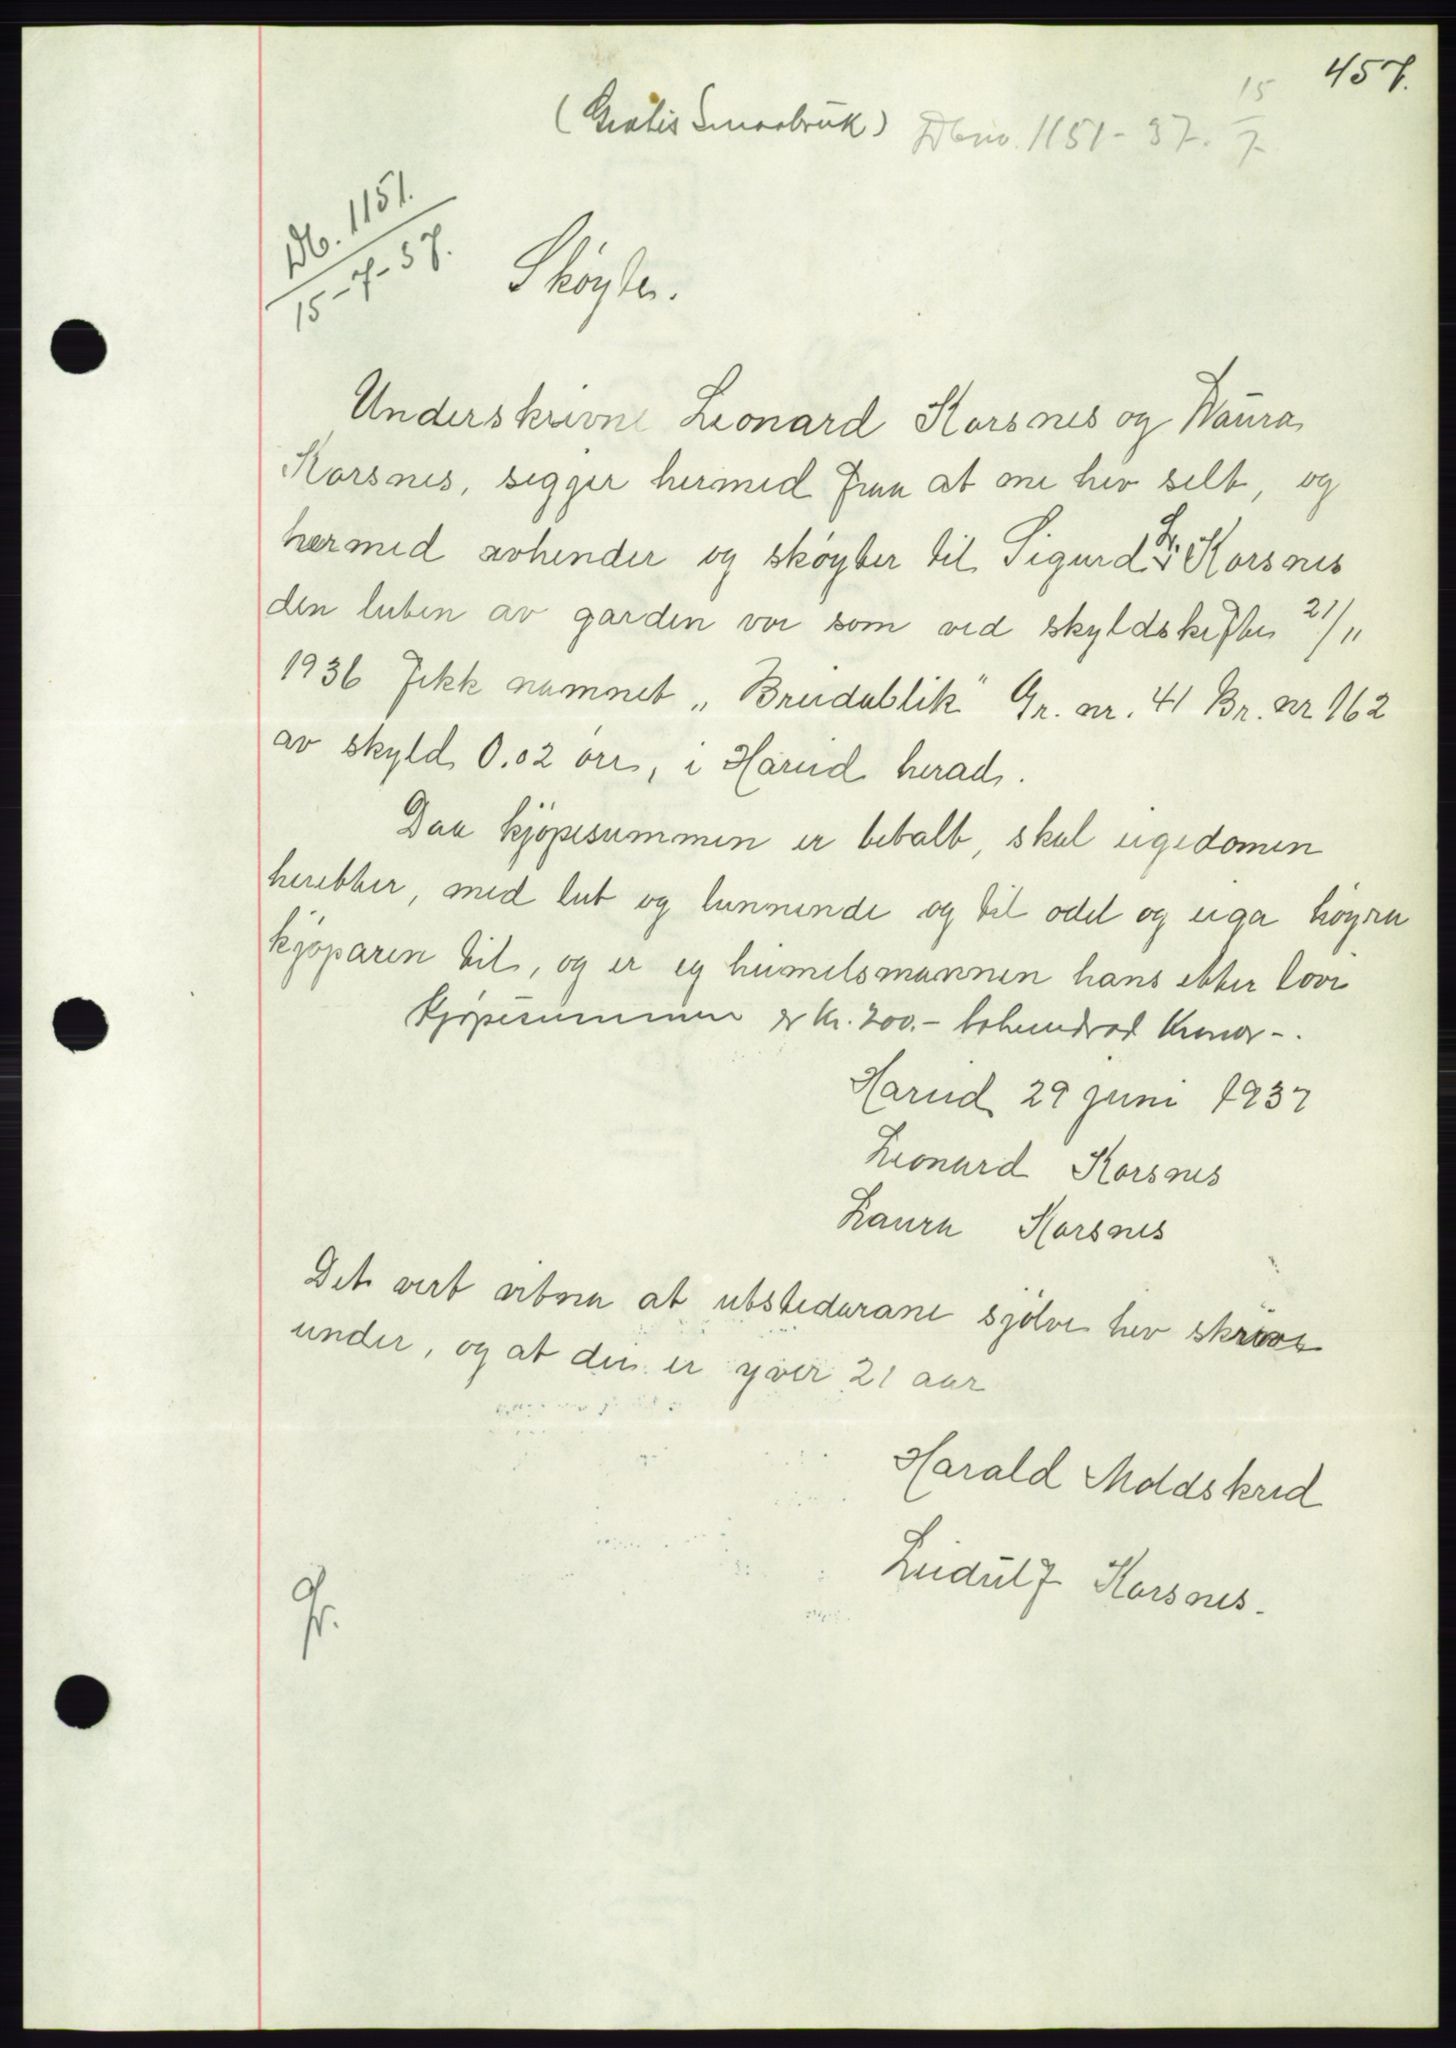 457.
(Gratis Smaabruk) Dbnr. 1151-37. 15/7
Db. 1151.
15-7-37.
Skøyte.
Underskrivne Leonard Korsnes og Laura
Korsnes, segjer hermed fraa at me hev selt, og
hermed avhender og skøyter til Sigurd L. Korsnes
den luten av garden vor som ved skyldskifte 21/11
1936 fekk namnet „Breidablik" Gr. nr. 41 Br. nr 162
av skyld 0.02 öre, i Hareid herad.
Daa kjöpesummen er betalt, skal eigedomen
heretter, med lut og lunnende og til odel og eiga höyra
kjöparen til, og er eg heimelsmannen hans etter lovi
Kjøpesummen er kr. 200.- tohundrad Kronor -.
Hareid 29 juni 1937
Leonard Korsnes
Laura Korsnes
Det vert vitna at utstedarane sjölve hev skrive
under, og at dei er yver 21 aar
Harald Moldskred
Leidulf Korsnes.